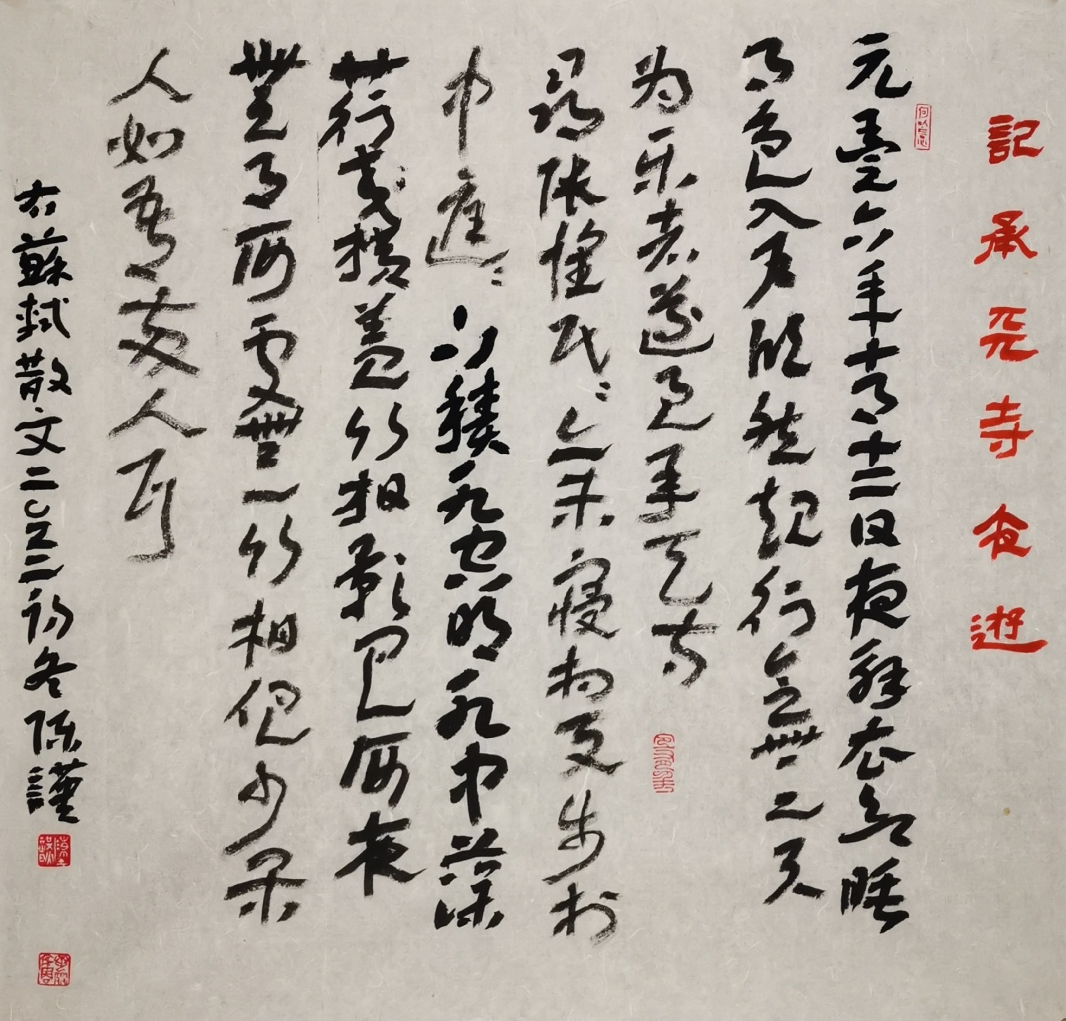 記承天寺夜遊
元豐六年十月十二日夜解衣欲睡
月色入户欣然起行念無
为乐者遂至承天寺
尋張懷民〻亦未寢相与步於
中庭〻下積水空明水中藻
荇交横蓋竹柏影也何夜
無月何處無竹柏但少閑
人如吾兩人耳
右蘇軾散文二〇二二初冬陈謹